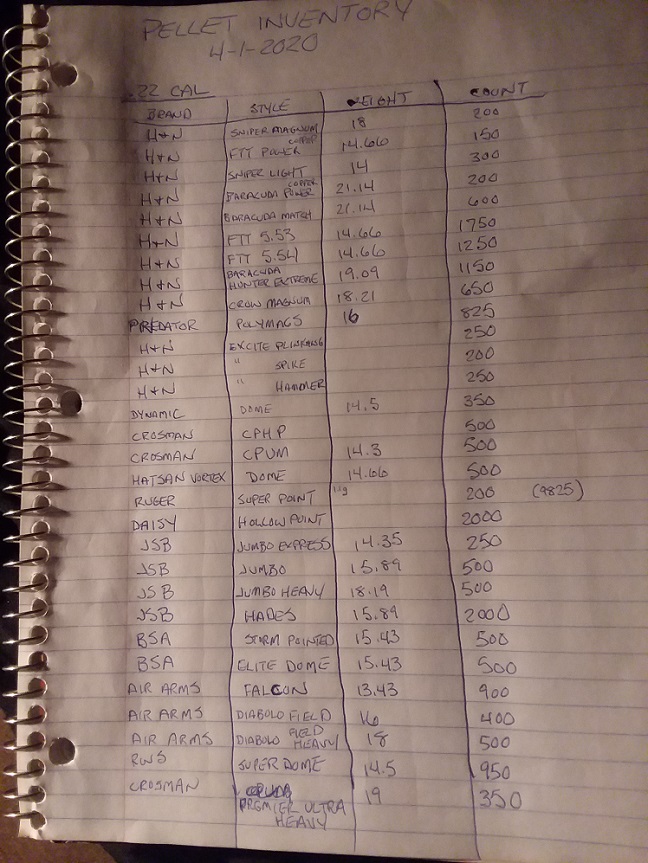 PELLET INVENTORY
4-1-2020
.22 CAL
BRAND STYLE WEIGHT COUNT
H+N SNIPER MAGNUM 18 200
H+N FTT POWER COPPER 14.66 150
H+N SNIPER LIGHT 14 300
H+N BARACUDA POWER COPPER 21.14 200
H+N BARACUDA MATCH 21.14 600
H+N FTT 5.53 14.66 1750
H+N FTT 5.54 14.66 1250
H+N BARACUDA HUNTER EXTREME 19.09 1150
H+N CROW MAGNUM 18.21 650
PREDATOR POLYMAGS 16 825
H+N EXCITE PLINKING 250
H+N " SPIKE 200
H+N " HAMMER 250
DYNAMIC DOME 14.5 350
CROSMAN CPHP 500
CROSMAN CPUM 14.3 500
HATSAN VORTEX DOME 14.66 500
RUGER SUPER POINT 200 (9825)
DAISY HOLLOW POINT 2000
JSB JUMBO EXPRESS 14.35 250
JSB JUMBO 15.89 500
JSB JUMBO HEAVY 18.19 500
JSB HADES 15.89 2000
BSA STORM POINTED 15.43 500
BSA ELITE DOME 15.43 500
AIR ARMS FALCON 13.43 900
AIR ARMS DIABOLO FIELD 16 400
AIR ARMS DIABOLO FIELD HEAVY 18 500
RWS SUPER DOME 14.5 950
CROSMAN 19 350
PREMIER ULTRA
HEAVY